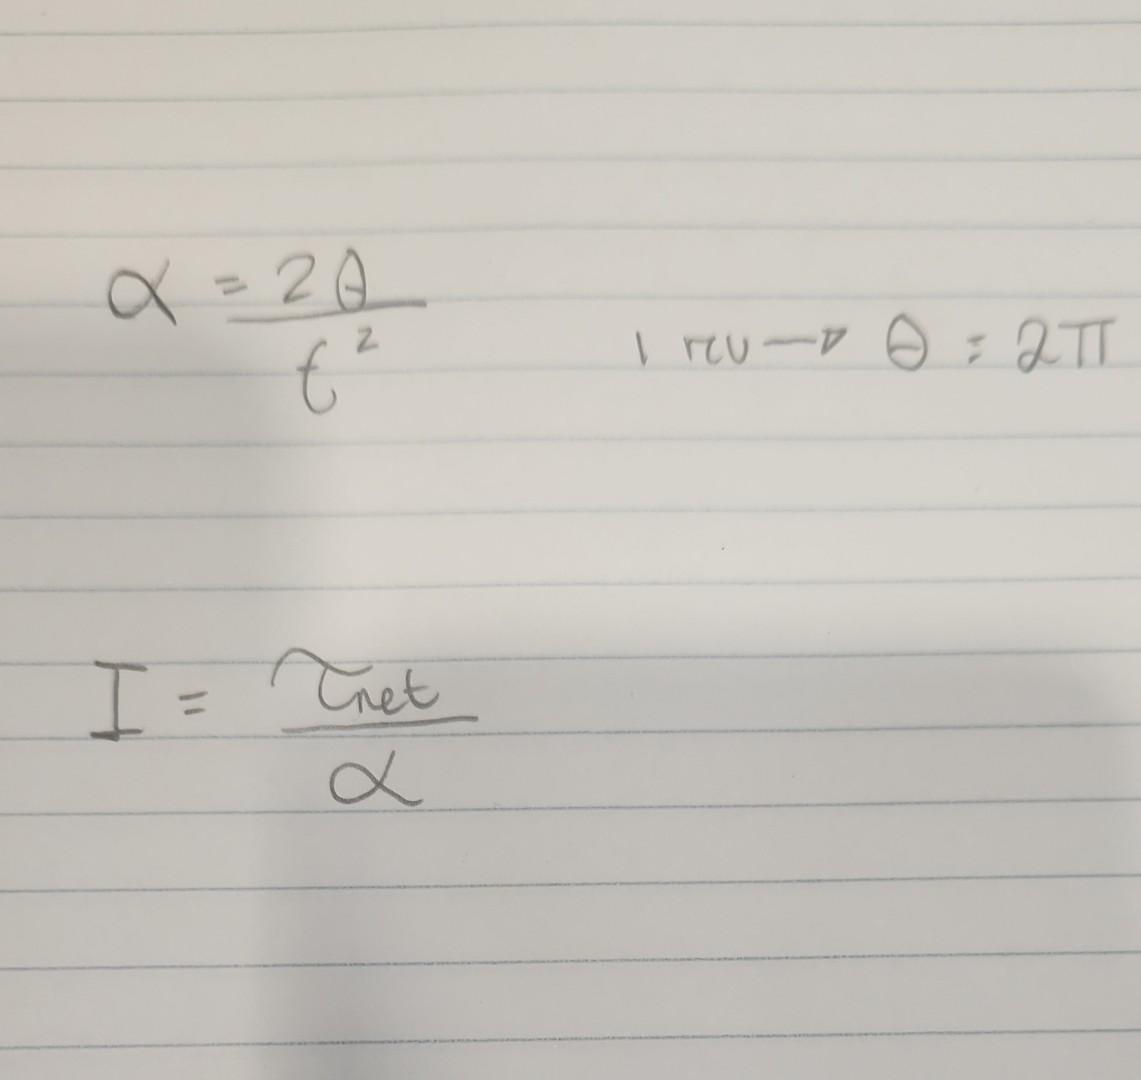 α = 2θ / t²
1 rev → θ = 2π
I = τnet / α